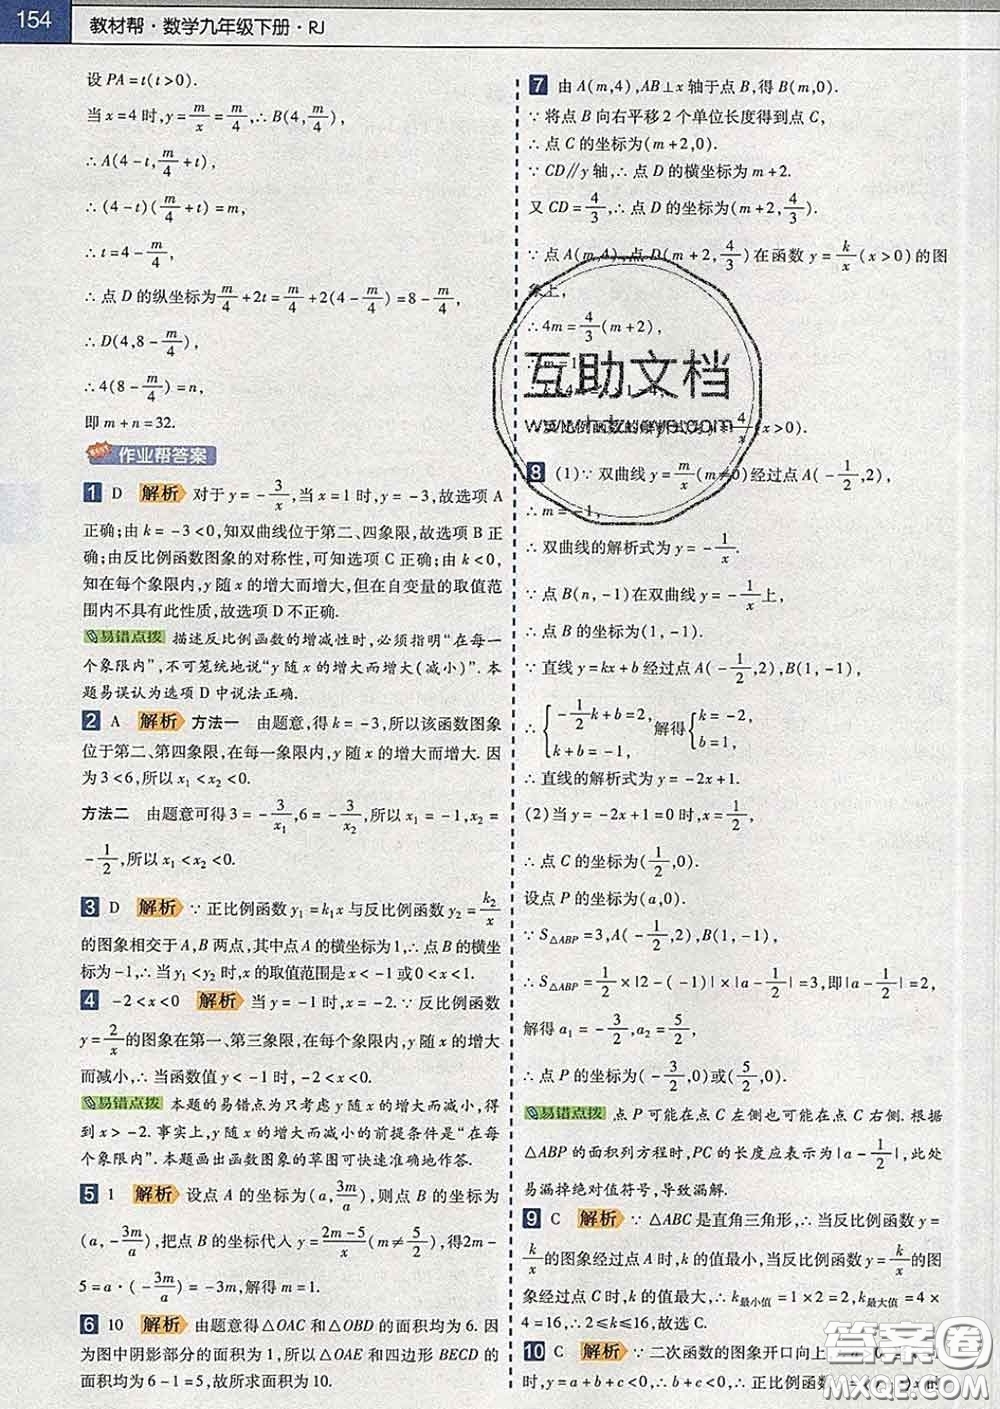 154 教材帮·数学九年级下册·RJ
设 PA=t(t>0).
当 x=4 时,y=m/x=m/4,∴B(4,m/4),
∴A(4-t,m/4+t),
∴(4-t)(m/4+t)=m,
∴t=4-m/4,
∴点 D 的纵坐标为m/4+2t=m/4+2(4-m/4)=8-m/4,
∴D(4,8-m/4),
∴4(8-m/4)=n,
即 m+n=32.
作业帮答案
1 D 解析 对于 y=-3/x,当 x=1 时,y=-3,故选项 A
正确;由 k=-3<0,知双曲线位于第二、四象限,故选项 B 正
确;由反比例函数图象的对称性,可知选项 C 正确;由 k<0,
知在每个象限内,y 随 x 的增大而增大,但在自变量的取值范
围内不具有此性质,故选项 D 不正确.
易错点拨 描述反比例函数的增减性时,必须指明“在每一
个象限内”,不可笼统地说“y 随 x 的增大而增大(减小)”.本
题易误认为选项 D 中说法正确.
2 A 解析 方法一 由题意,得 k=-3,所以该函数图象
位于第二、第四象限,在每一象限内,y 随 x 的增大而增大.因
为 3<6,所以 x₁<x₂<0.
方法二 由题意可得 3=-3/x₁,6=-3/x₂,所以 x₁=-1,x₂=
-1/2,所以 x₁<x₂<0.
3 D 解析 ∵正比例函数 y₁=k₁x 与反比例函数 y₂=k₂/x
的图象相交于 A,B 两点,其中点 A 的横坐标为 1,∴点 B 的横坐
标为-1,∴当 y₁<y₂ 时,x 的取值范围是 x<-1 或 0<x<1.
4 -2<x<0 解析 当 y=-1 时,x=-2.∵反比例函数
y=2/x的图象在第一、第三象限,在每个象限内,y 随 x 的增大
而减小,∴当函数值 y<-1 时,-2<x<0.
易错点拨 本题的易错点为只考虑 y 随 x 的增大而减小,得
到 x>-2.事实上,y 随 x 的增大而减小的前提条件是“在每
个象限内”.本题画出函数图象的草图可快速准确地作答.
5 1 解析 设点 A 的坐标为(a,3m/a),则点 B 的坐标为
(a,-3m/a),把点 B 的坐标代入 y=(2m-5)/x(m≠5/2),得2m-
5=a·(-3m/a)=-3m,解得 m=1.
6 10 解析 由题意得△OAC 和△OBD 的面积均为 6.因
为图中阴影部分的面积为 1,所以△OAE 和四边形 BECD 的
面积均为 6-1=5,故所求面积为 10.
7 由 A(m,4),AB⊥x 轴于点 B,得 B(m,0).
∵将点 B 向右平移 2 个单位长度得到点 C,
∴点 C 的坐标为(m+2,0).
∵CD∥y 轴,∴点 D 的横坐标为 m+2.
又 CD=4/3,∴点 D 的坐标为(m+2,4/3).
∵点 A(m,4),点 D(m+2,4/3)在函数 y=k/x(x>0)的图
象上,
∴4m=4/3(m+2),
∴m=1
(x>0).
8 (1)∵双曲线 y=m/x(m≠0)经过点 A(-1/2,2),
∴m=-1,
∴双曲线的解析式为 y=-1/x.
∵点 B(n,-1)在双曲线 y=-1/x上,
∴点 B 的坐标为(1,-1).
∵直线 y=kx+b 经过点 A(-1/2,2),B(1,-1),
∴{-1/2k+b=2, k+b=-1, 解得{k=-2, b=1,
∴直线的解析式为 y=-2x+1.
(2)当 y=-2x+1=0 时,x=1/2,
∴点 C 的坐标为(1/2,0).
设点 P 的坐标为(a,0).
∵S△ABP=3,A(-1/2,2),B(1,-1),
∴S△ABP=1/2×|2-(-1)|×|a-1/2|=3,即|a-1/2|=2,
解得 a₁=-3/2,a₂=5/2,
∴点 P 的坐标为(-3/2,0)或(5/2,0).
易错点拨 点 P 可能在点 C 左侧也可能在点 C 右侧.根据
△ABP 的面积列方程时,PC 的长度应表示为|a-1/2|,此处
易漏掉绝对值符号,导致漏解.
9 C 解析 ∵△ABC 是直角三角形,∴当反比例函数 y=
k/x的图象经过点 A 时,k 的值最小,当反比例函数 y=k/x的图
象经过点 C 时,k 的值最大,∴k最小值=1×2=2,k最大值=4×
4=16,∴2≤k≤16,故选 C.
10 C 解析 ∵二次函数的图象开口向上
时,y=a+b+c<0,∴正比例函数
互助文档
答案圈
MXQE.COM